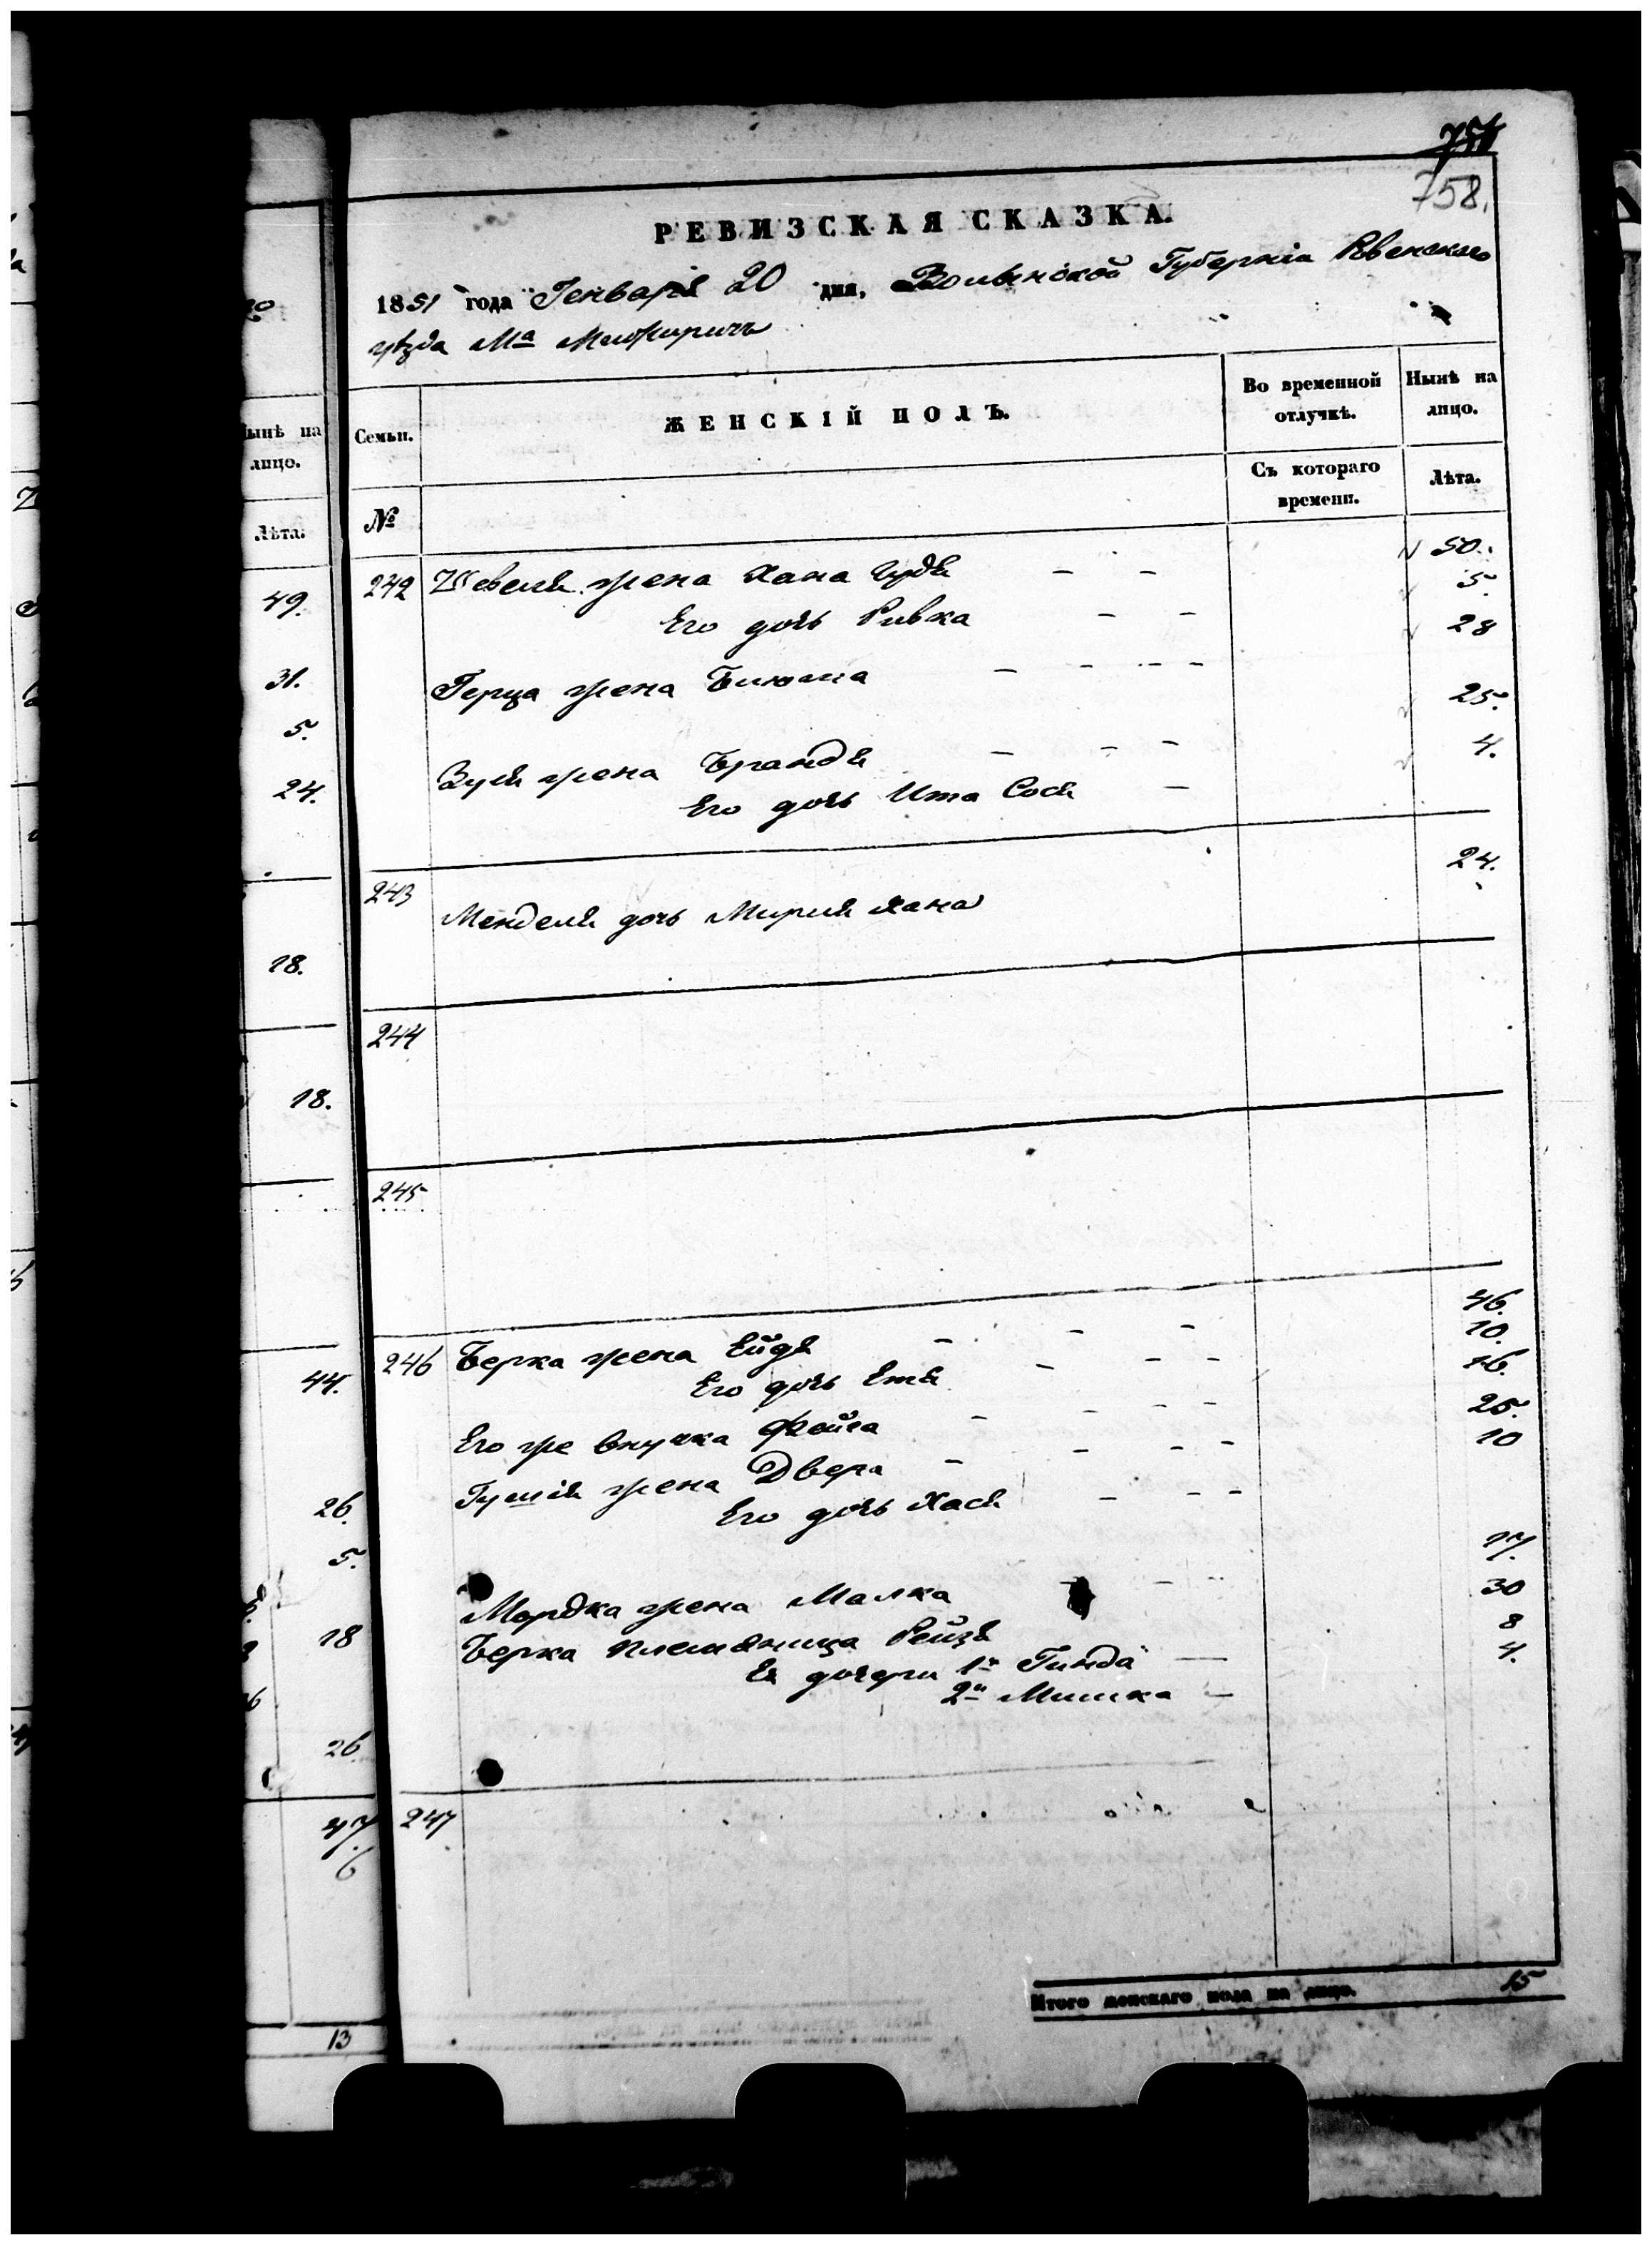 758.
РЕВИЗСКАЯ СКАЗКА.
1851 года Генваря 20 дня, Волынской Губерніи Ровенскаго
уѣзда Мª Межиричъ
Семьи.
ЖЕНСКІЙ ПОЛЪ.
Во временной отлучкѣ.
Нынѣ на лицо.
№
Съ котораго времени.
Лѣта.
242 Шевеля жена Хана Гудя — — 50.
Его дочь Ривка — — 5.
Герца жена Блюма — — — — 28
Зуся жена Брандя — — — 25.
Его дочь Ита Сося — 4.
243 Менделя дочь Мирія Хана 24.
244
245
246 Берка жена Ейдя — — — 46.
Его дочь Етя — — — 10.
Его же внучка Фейга — — — — 16.
Гушія жена Двера — — — — 25.
Его дочь Хася — — — 10
Мордка жена Малка — — 17.
Берка племянница Рейзя 30
Ея дочери 1я Гинда — 8
2я Минка — 4.
247
Итого женскаго пола на лицо. 15
ынѣ на
лицо.
Лѣта.
49.
31.
5.
24.
18.
18.
44.
26.
5.
18
26
47
6
13